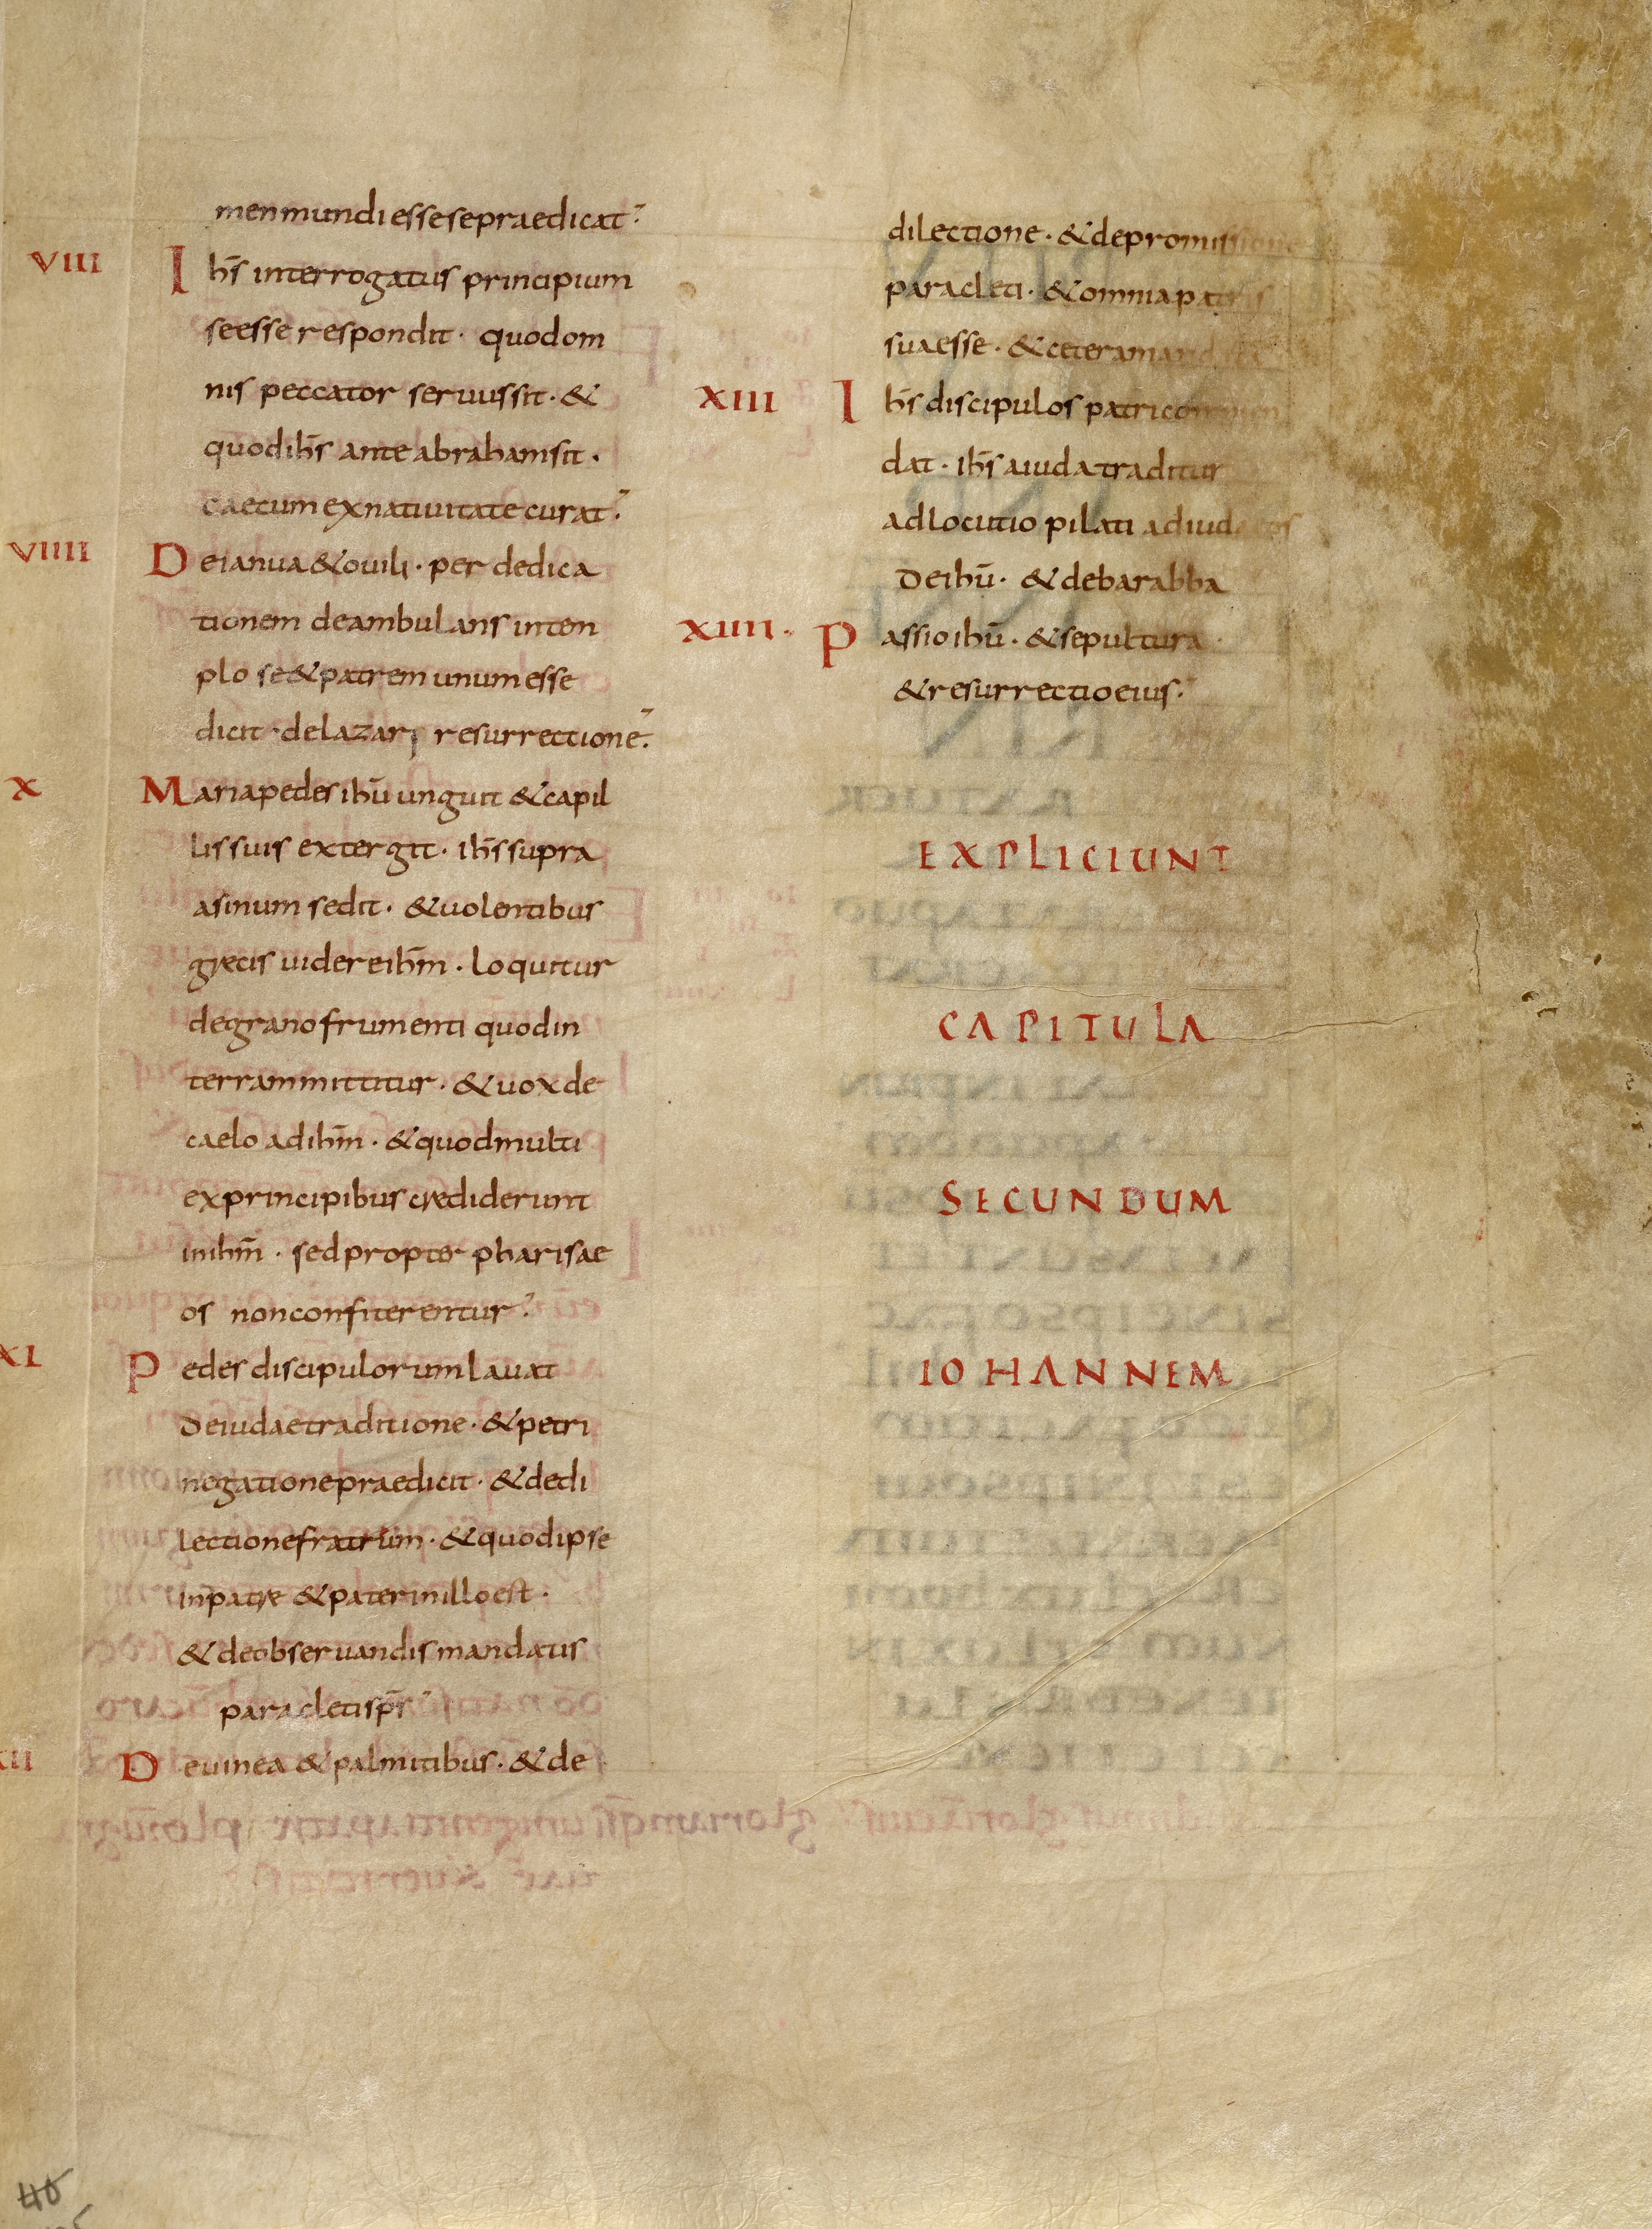 men mundi esse se praedicat
VIII Ihs̄ interrogatus principium
se esse respondit · quod om
nis peccator seruus sit · &
quod ihs̄ ante abraham sit ·
caecum ex natiuitate curat
VIIII De ianua & ouili · per dedica
tionem deambulans in tem
plo se & patrem unum esse
dicit · de lazari resurrectione
X Maria pedes ihū unguit & capil
lis suis extergit · ihs̄ supra
asinum sedit · & uolentibus
grecis uidere ihm̄ · loquitur
de grano frumenti quod in
terram mittitur · & uox de
caelo ad ihm̄ · & quod multi
ex principibus crediderunt
in ihm̄ · sed propter pharisae
os non confiterentur
XI Pedes discipulorum lauat
de iudae traditione · & petri
negatione praedicit · & de di
lectione fratrum · & quod ipse
in patre & pater in illo est ·
& de obseruandis mandatis
paracleti sps̄
XII De uinea & palmitibus · & de
dilectione · & de promissione
paracleti · & omnia patris
sua esse · & cetera mandata
XIII Ihs̄ discipulos patri commen
dat · ihs̄ a iuda traditur
adlocutio pilati ad iudaeos
de ihū · & de barabba
XIIII · Passio ihū · & sepultura ·
& resurrectio eius
EXPLICIUNT
CAPITULA
SECUNDUM
IOHANNEM